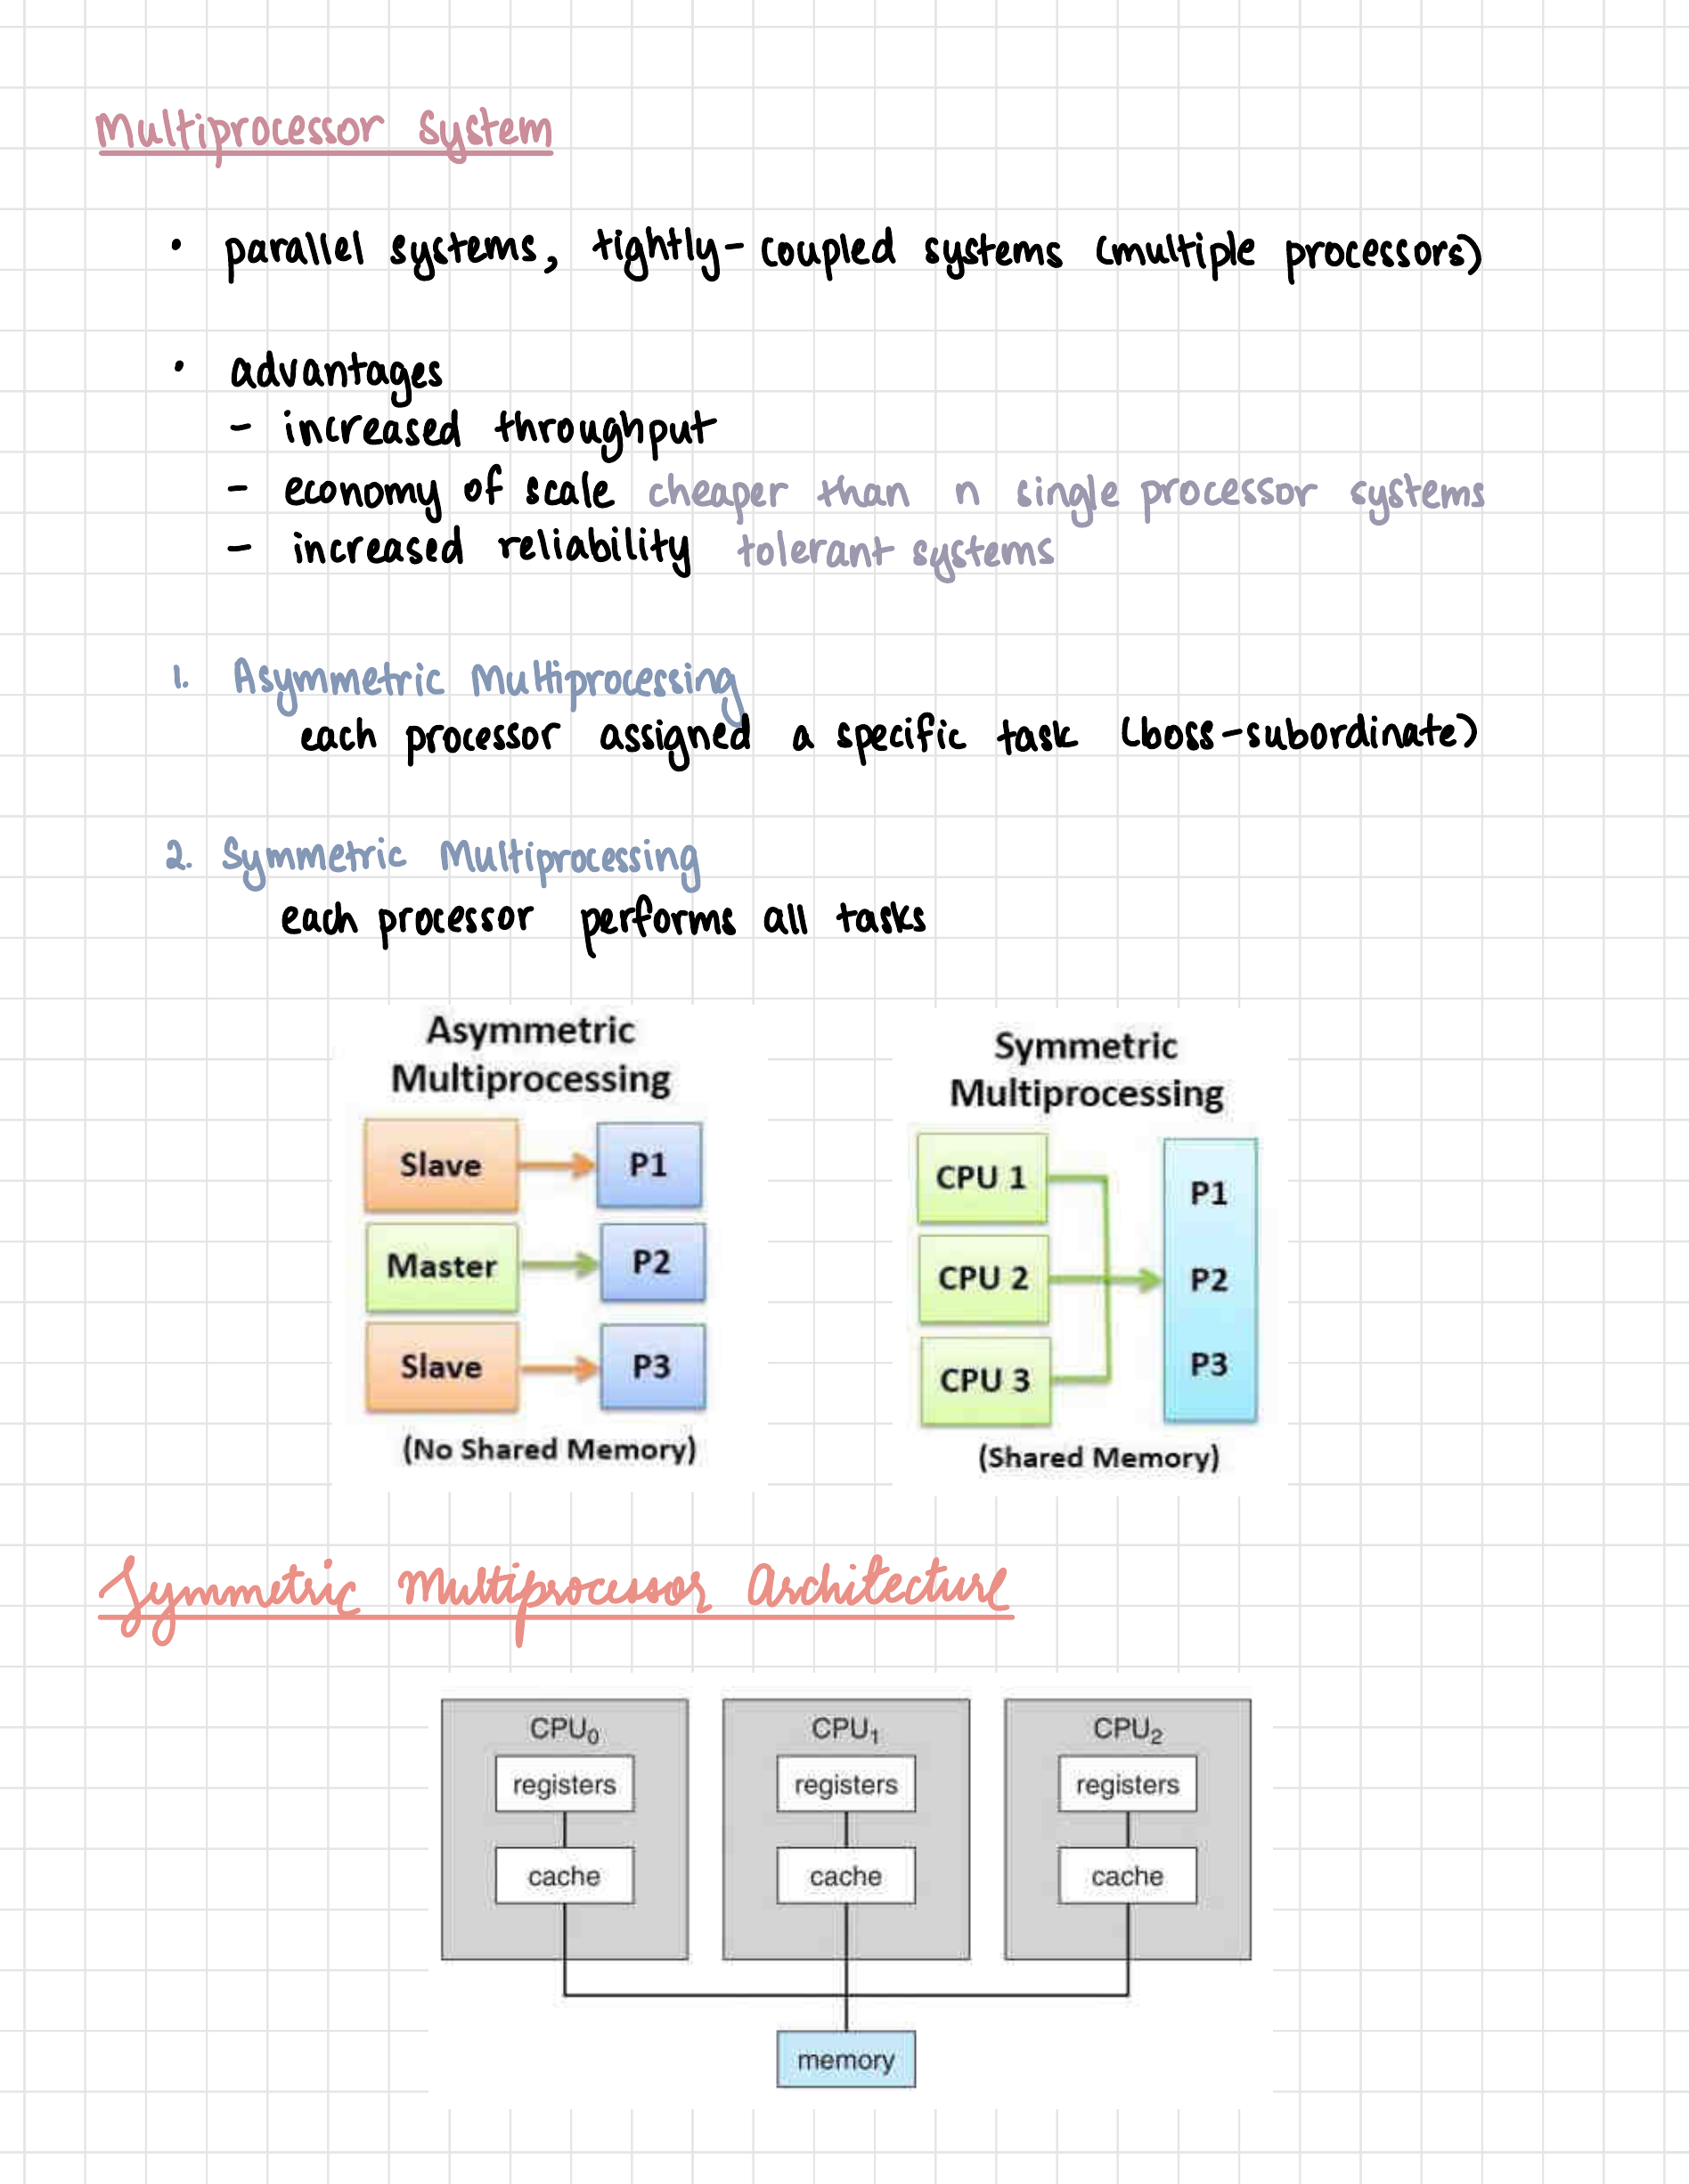 Multiprocessor System
• parallel systems, tightly-coupled systems (multiple processors)
• advantages
- increased throughput
- economy of scale cheaper than n single processor systems
- increased reliability tolerant systems
1. Asymmetric Multiprocessing
each processor assigned a specific task (boss-subordinate)
2. Symmetric Multiprocessing
each processor performs all tasks
Asymmetric
Multiprocessing
Slave P1
Master P2
Slave P3
(No Shared Memory)
Symmetric
Multiprocessing
CPU 1 P1
CPU 2 P2
CPU 3 P3
(Shared Memory)
Symmetric Multiprocessor Architecture
CPU₀ CPU₁ CPU₂
registers registers registers
cache cache cache
memory